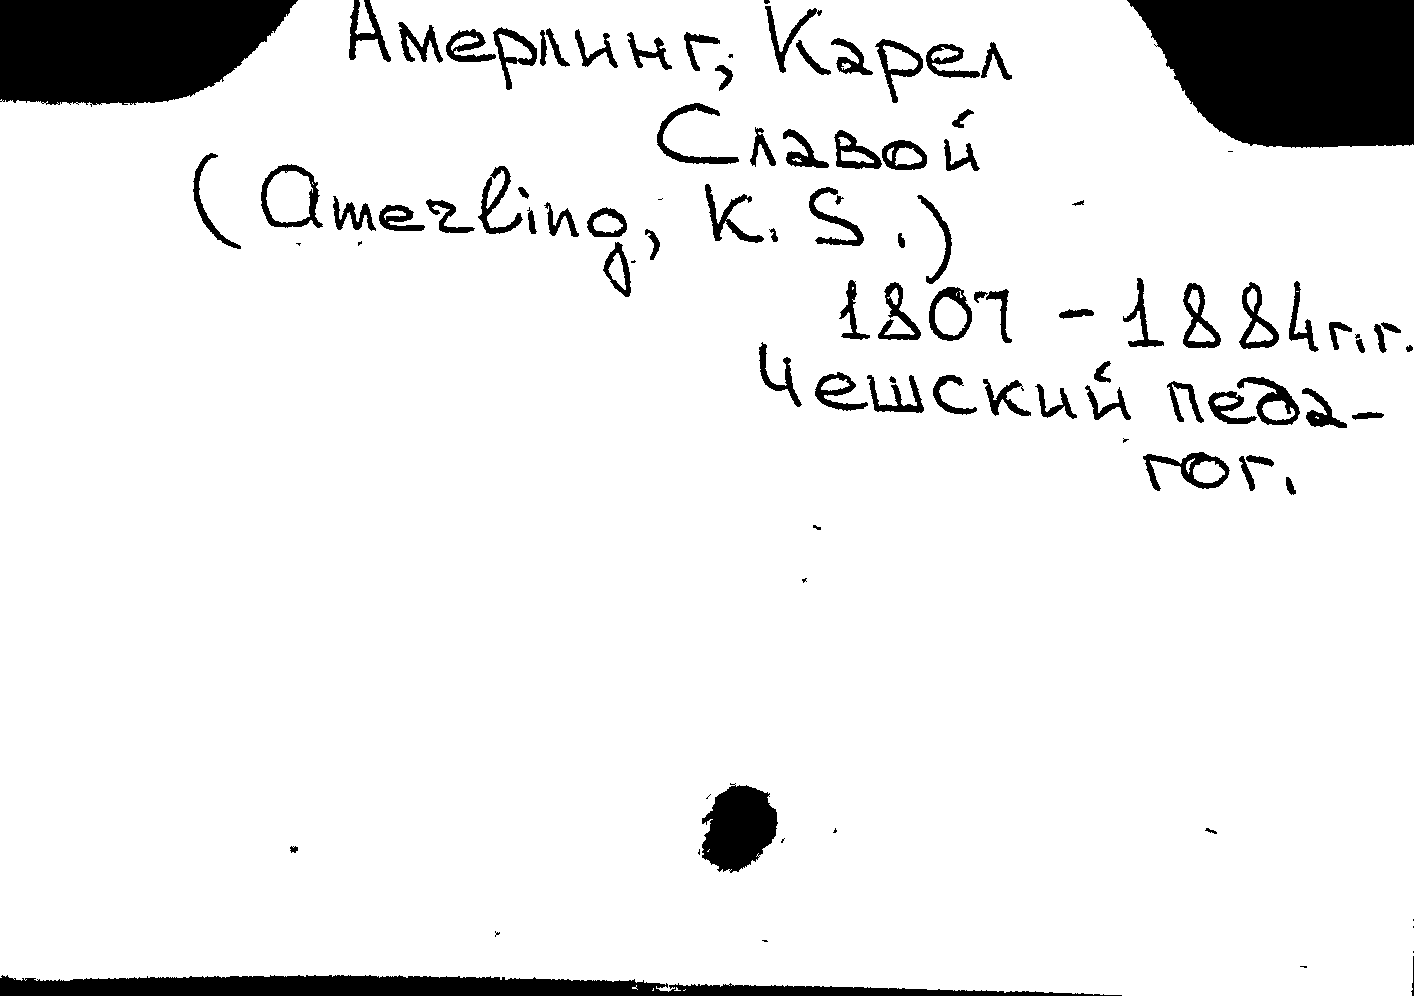 Амерлинг, Карел
Славой
(Amerling, K. S.)
1807 - 1884 г.г.
Чешский педа-
гог.